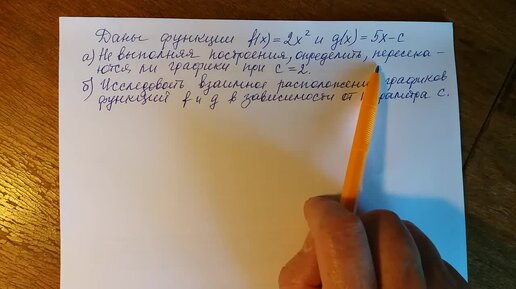 Даны функции f(x)=2x² и g(x)=5x-c
а) Не выполняя построения, определить, пересека-
ются ли графики при c=2.
б) Исследовать взаимное расположение графиков
функций f и g в зависимости от параметра c.